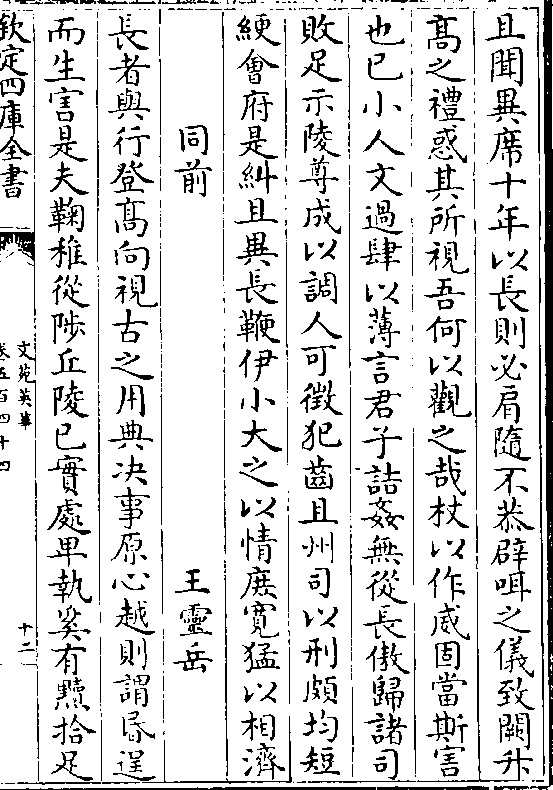 且聞異席十年以長則必肩隨不恭辟咡之儀致闕升
髙之禮惑其所視吾何以觀之哉杖以作威固當斯害
也已小人文過肆以薄言君子詰姦無從長傲歸諸司
敗足示陵尊成以調人可徴犯齒且州司以刑頗均短
綆會府是糾且異長鞭伊小大之以情庶寛猛以相濟
同前 王靈岳
長者與行登髙向視古之用典决事原心越則謂昏逞
而生害是夫鞠稚從陟丘陵已實處卑執奚有黷拾足
欽定四庫全書
文苑英華
卷五百四十四
十二